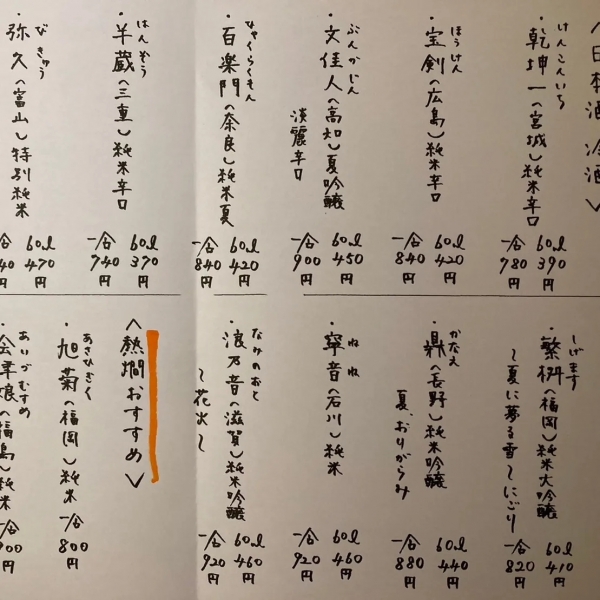 〈日本酒 冷酒〉
けんこんいち
・乾坤一(宮城)純米辛口
60ml 390円
一合 780円
ほうけん
・宝剣(広島)純米辛口
60ml 420円
一合 840円
ぶんかじん
・文佳人(高知)夏吟醸
淡麗辛口
60ml 450円
一合 900円
ひゃくらくもん
・百楽門(奈良)純米夏
60ml 420円
一合 840円
はんぞう
・半蔵(三重)純米辛口
60ml 370円
一合 740円
びきゅう
・弥久(富山)特別純米
60ml 470円
一合 940円
しげます
・繁桝(福岡)純米大吟醸
〜夏に夢る雪〜にごり
60ml 410円
一合 820円
かなえ
・鼎(長野)純米吟醸
夏、おりがらみ
60ml 440円
一合 880円
ねね
・寧音(石川)純米
60ml 460円
一合 920円
なみのおと
・浪乃音(滋賀)純米吟醸
〜花火〜
60ml 460円
一合 920円
〈熱燗おすすめ〉
あさひぎく
・旭菊(福岡)純米
一合 800円
あいづむすめ
・会津娘(福島)純米
一合 900円